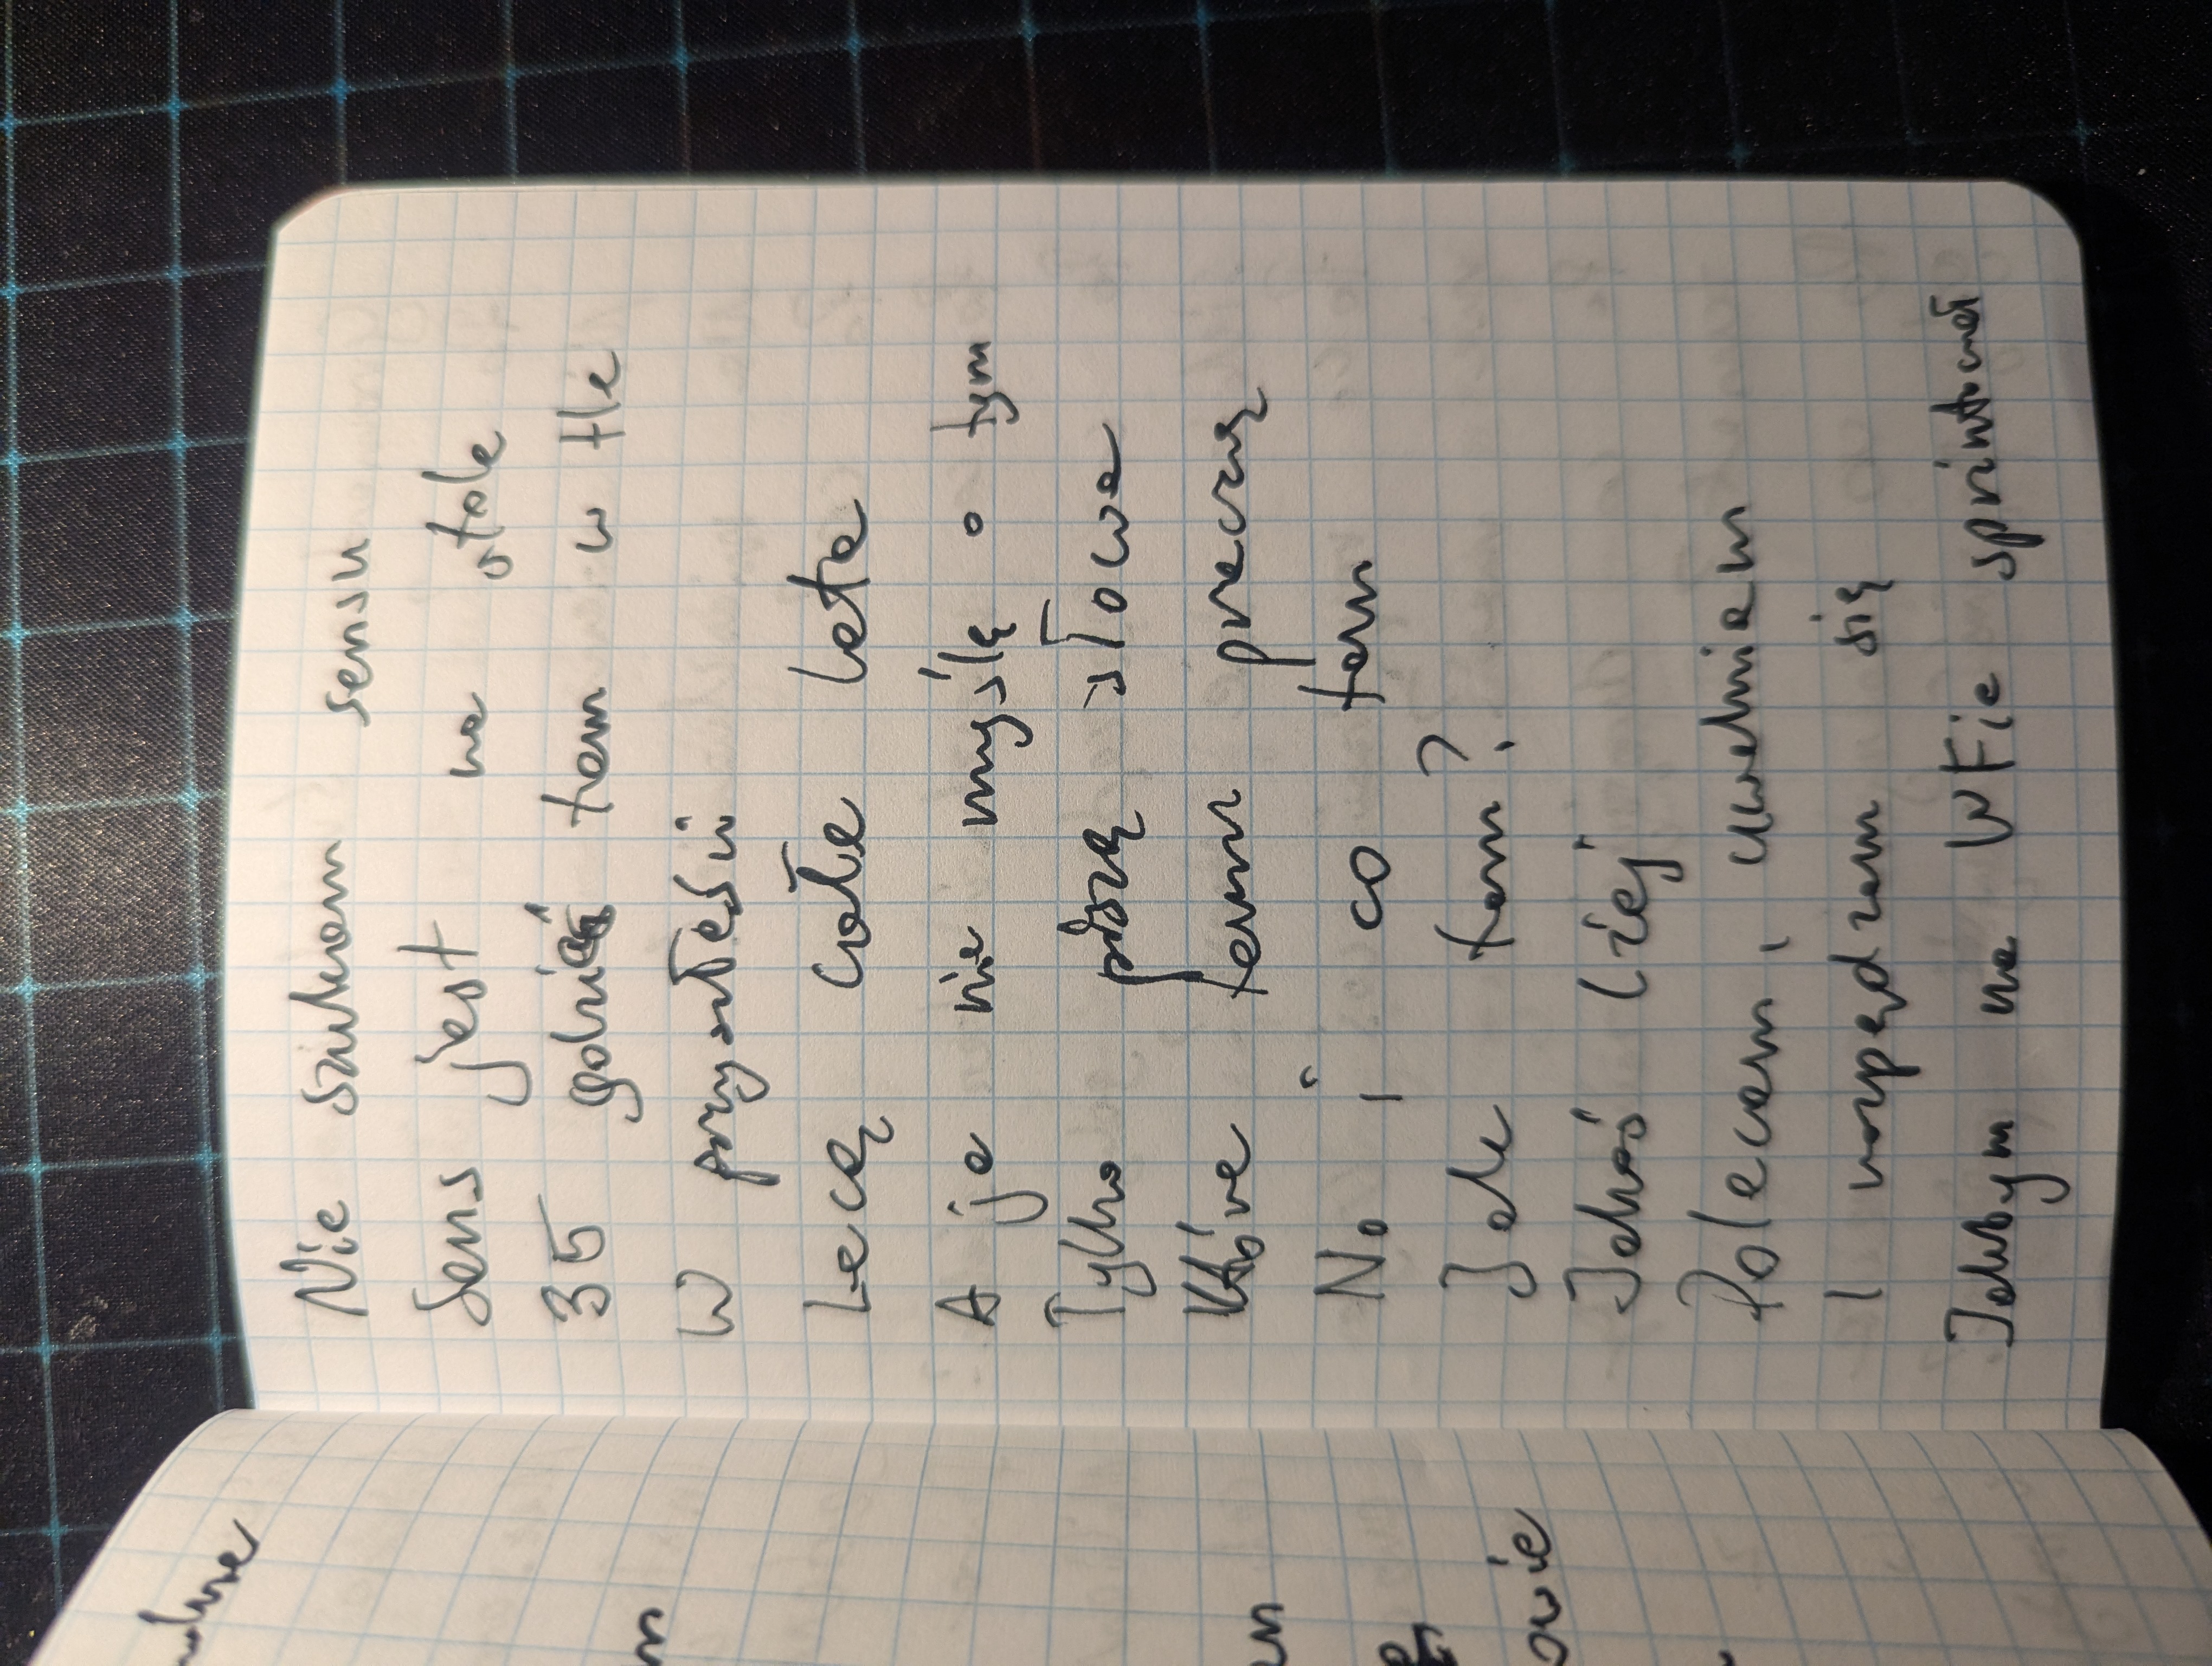 Nie szukam sensu
Sens jest na stole
35 gdzieś tam w tle
W przyszłości
Lecą całe lata
A ja nie myślę o tym
Tylko piszę słowa
Które temu przeczą
No i co tam
Jak tam?
Jakoś lżej
Polecam, uwalniam
I napędzam się
Jakbym na WFie sprintował
owie